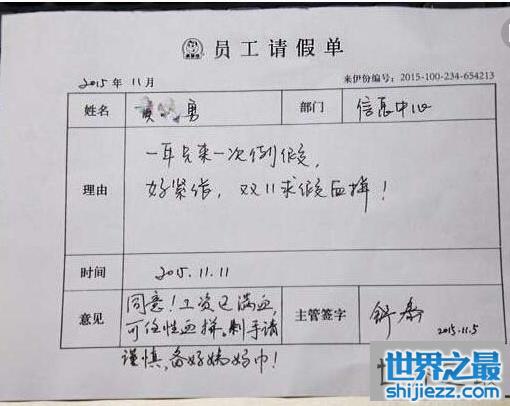 员工请假单
2015年11月
来伊份编号：2015-100-234-654213
姓名 黄 勇 部门 信息中心
理由
一年只来一次例假，
好紧张，双11求假血拼！
时间 2015.11.11
意见
同意！工资已满血，
可任性血拼。剁手请
谨慎，备好姨妈巾！
主管签字
2015.11.5
世界之最
shijiezz.com